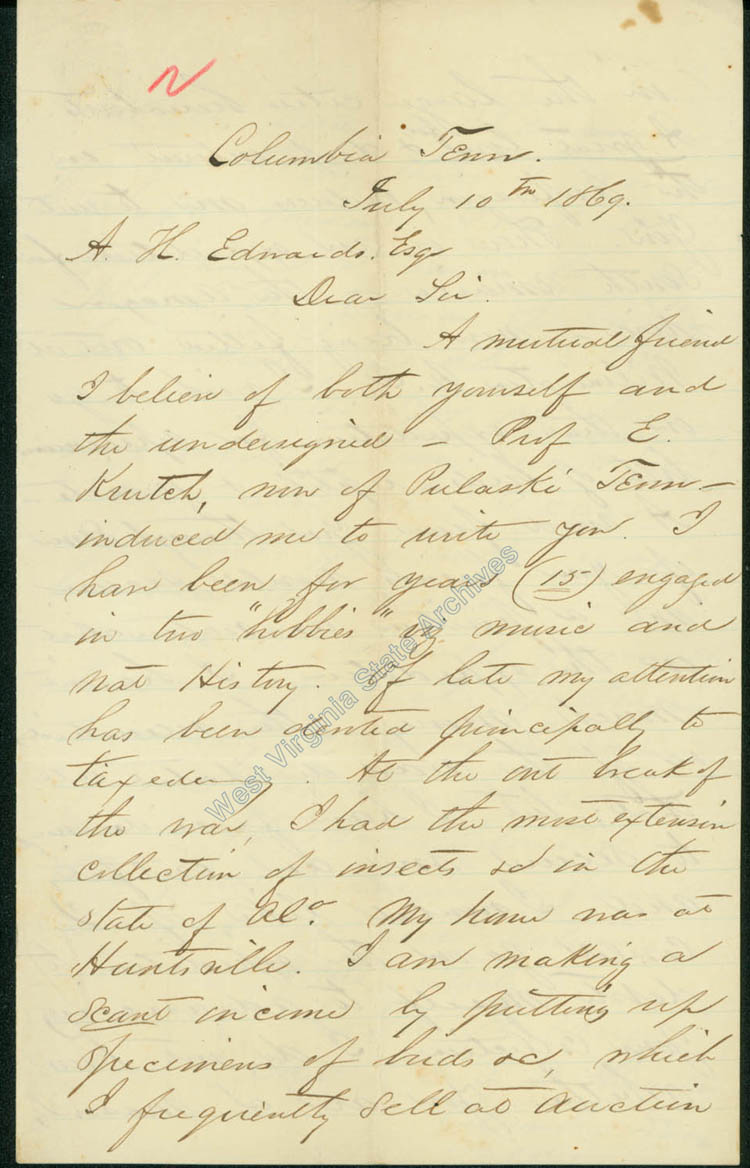 N
Columbia Tenn.
July 10th 1869.
A. H. Edwards. Esq
Dear Sir.
A mutual friend
I believe of both yourself and
the undersigned – Prof E.
Krutch, now of Pulaski Tenn –
induced me to write you. I
have been for years (15) engaged
in two "hobbies" viz music and
nat History. Of late my attention
has been devoted principally to
taxedermy. At the out break of
the war, I had the most extensive
collection of insects &c in the
state of Ala. My home was at
Huntsville. I am making a
scant income by putting up
specimens of birds &c, which
I frequently sell at Auction
West Virginia State Archives